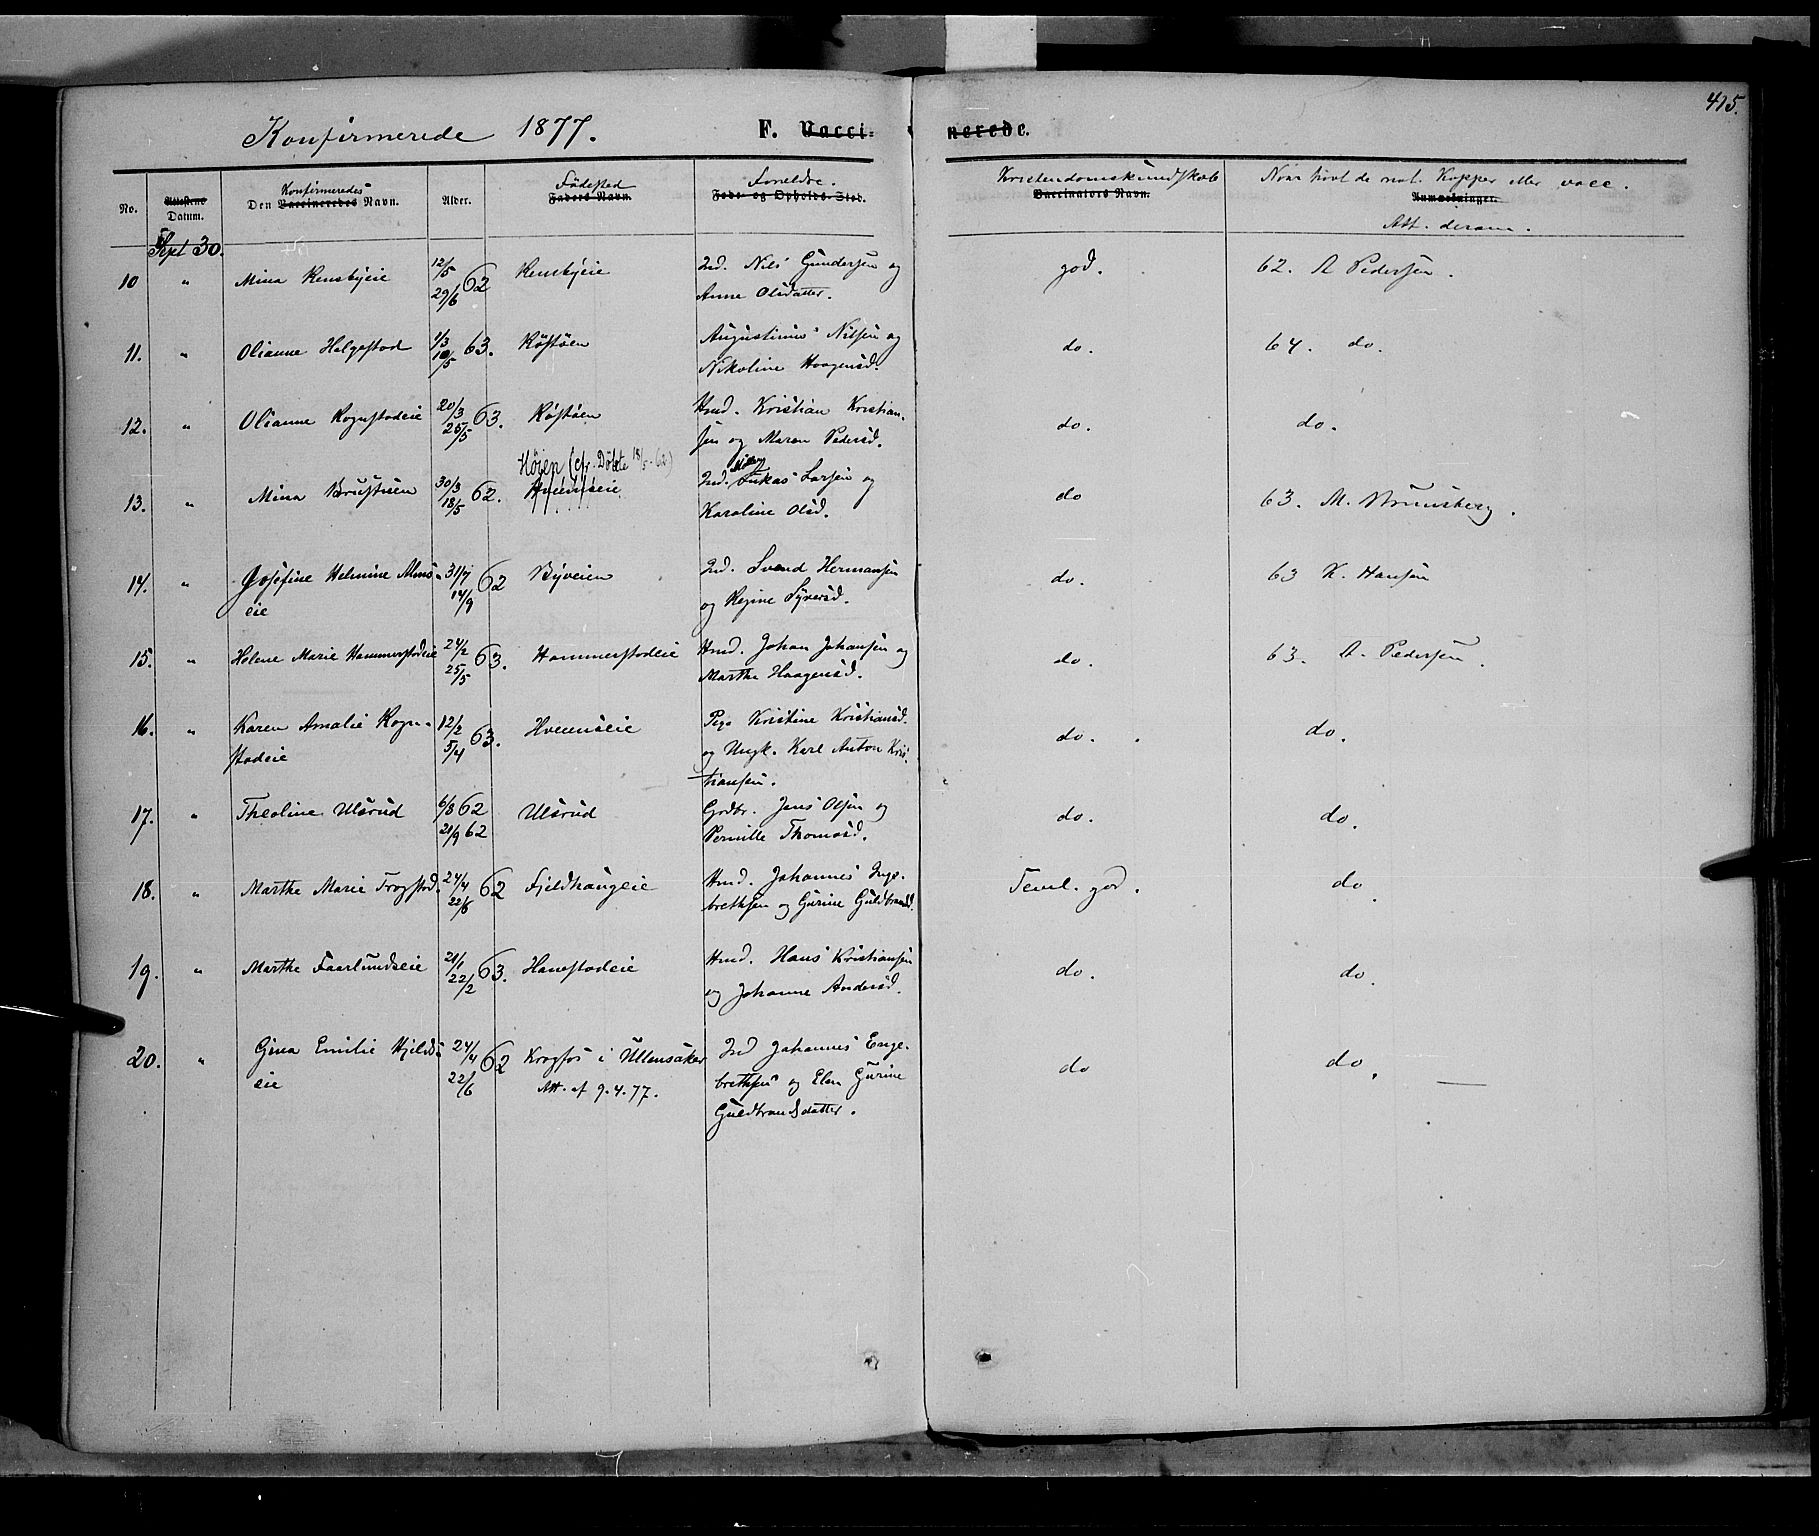 415.
Konfirmerede 1877.
F. Vacci- nerede.
No.
Attestens Datum.
Konfirmeredes
Den Vaccineredes Navn.
Alder.
Fødested
Faders Navn.
Forældre.
Føde- og Opholds-Sted.
Kristendomskundskab
Vaccinators Navn.
Naar havt de nat. Kopper eller vacc.
Anmærkninger.
Att. derom.
Sept 30.
10 " Mina Rensbyeie 12/5 29/6 62 Rensbyeie Ind. Nils Gundersen og god. 62. A Pedersen.
Anne Olsdatter.
11. " Olianne Helgestad 1/3 10/5 63. Røstøen Augustinus Nilsen og do. 64. do.
Nikoline Haagensd.
12. " Olianne Rognstadeie 20/3 25/5 63. Røstøen Hmd. Kristian Kristian- do. do.
sen og Maren Pedersd.
Høien (cfr. Døbte 18/5-62)
13. " Mina 30/3 18/5 62. Hveemseie Ind. Lukas Larsen og do 63. M.
Karoline Olsd.
14. " Josefine Helmine Alms- 31/7 14/9 62 Byveien Ind. Svend Hermansen do. 63 K. Hansen
eie og Regine Syversd.
15. " Helene Marie Hammerstadeie 24/2 25/5 63. Hammerstadeie Hmd. Johan Johansen og do. 63. A. Pedersen.
Marthe Haagensd.
16. " Karen Amalie Rogn- 12/2 5/4 63. Hveemseie Pige Kristine Kristiansd. do. do.
stadeie og Ungk. Karl Anton Kris-
tiansen.
17. " Theoline Ulsrud 6/8 62 21/9 62 Ulsrud Grdbr. Jens Olsen og do. do.
Pernille Thomasd.
18. " Marthe Marie Trogstad. 24/4 22/6 62 Fjeldhaugeie Hmd. Johannes Inge- Teml. god. do.
brethsen og Gurine Guldbrandsd.
19. " Marthe Faarlundseie 21/1 22/2 63. Hanestadeie Hmd. Hans Kristiansen do. do.
og Johanne Andersd.
20. " Gina Emilie Hjelds- 24/4 22/6 62 Krogfos i Ullensaker Ind Johannes Enge- do do.
eie Att. af 9.4.77. brethsen og Elen Gurine
Guldbrandsdatter.